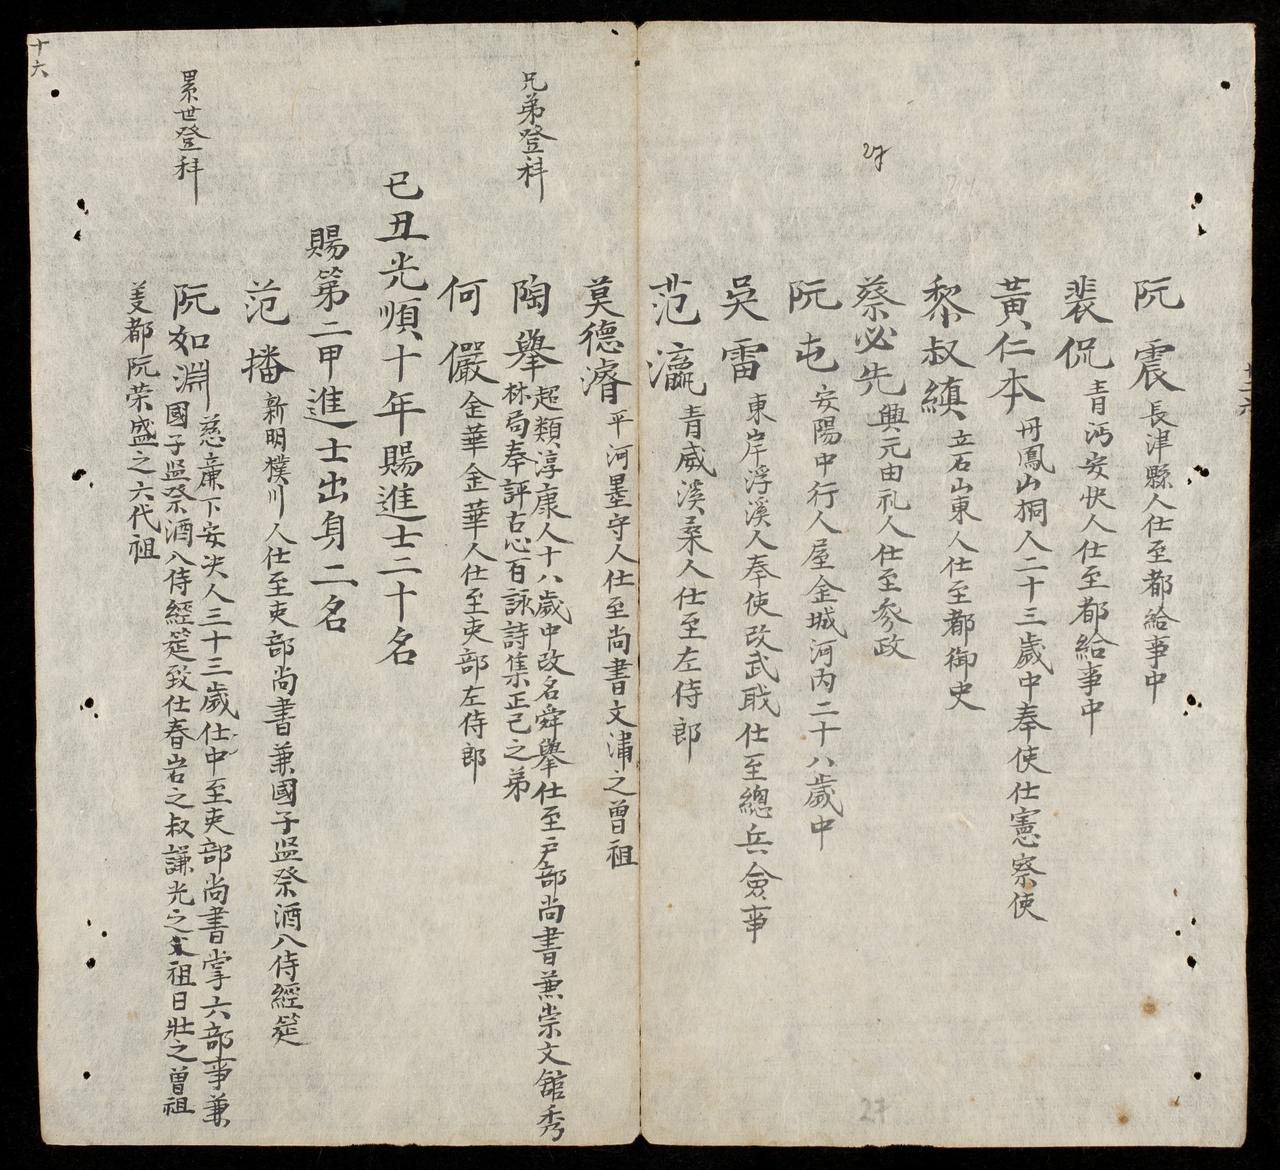 27
阮震 長津縣人仕至都給事中
裴侃 青沔安快人仕至都給事中
黃仁本 丹鳳山桐人二十三歲中奉使仕憲察使
黎叔縝 立石山東人仕至都御史
蔡必先 興元由礼人仕至参政
阮屯 安陽中行人屋金城河内二十八歲中
吳雷 東岸浮溪人奉使改武职仕至總兵僉事
范瀛 青威溪桑人仕至左侍郎
莫德濬 平河墨守人仕至尚書文浦之曾祖
兄弟登科
陶舉 超類淳康人十八歲中改名舜舉仕至戸部尚書兼崇文舘秀
林局奉評古心百詠詩集正己之弟
何儼 金華金華人仕至吏部左侍郎
己丑光順十年賜進士二十名
賜第二甲進士出身二名
范播 新明樸川人仕至吏部尚書兼國子监祭酒入侍經筵
累世登科
阮如淵 慈廉下安决人三十三歲仕中至吏部尚書掌六部事兼
國子监祭酒入侍經筵致仕春岩之叔謙光之祖日壯之曾祖
姜都阮荣盛之六代祖
十六
27